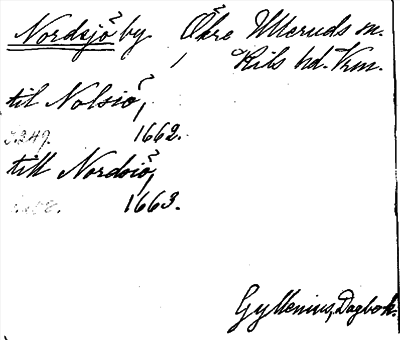 Nordsjö by Övre Ulleruds sn.
Kils hd. Vrm.
til Nolsiö,
s. 249. 1662.
till Nordsiö,
1663.
Gyllenius, Dagbok.